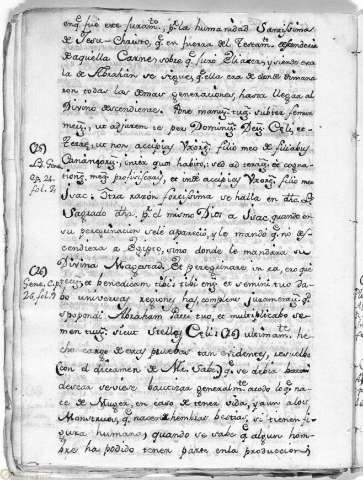 enq.e fué este juram.to, p.r la humanidad Sanctissima
de Jesu-Christo, q.e en fuerza del Testam. descendería
de aquella Carne, sobre q.e juró Eliazer, y siendo esta
la de Abrahán se sigue, q.e ella era de donde dimana-
ron todas las demas generaciones, hasta llegar al
Divino descendiente. Pone manum tuam subter femur
meum, ut adjurem te per Dominum Deum Cæli, et
Terræ, ut non accipias Uxorem filio meo de filiabus
Cananeorum, inter quos habito, sed ad terram, et cogna-
tionem meam proficiscaris, et inde accipias Uxorem filio meo
Isac. Otra razón fortissima se halla en dho
Sagrado p.r el mismo Dios a Isac, quando en
su peregrinacion se le apareció, y le mandó q.e no des-
cendiera a Egipto, sino donde le mandara su
Divina Magestad. Et peregrinare in ea, ero que
tecum, et benedicam tibi: tibi enim et semini tuo da-
bo universas regiones has complens juramentum q.d
spopondi Abraham Patri tuo, et multiplicabo se-
men tuum sicut stellas Cæli: (26) ultimam.te
hecho cargo de estas pruebas tan evidentes, resuelbo
(con el dictamen de
se viese bautizar generalm.te a todo lo q.e na-
ce de Muger, en caso de tener vida, y aun a los
Monstruos, q.e nacen de hembras bestias, si tienen fi-
gura humana, quando se sabe q.e algun hom-
bre ha podido tener parte en la produccion;
(25)
Lb. Gen.
Cp. 24.
(26)
Gene. Cp.
26.